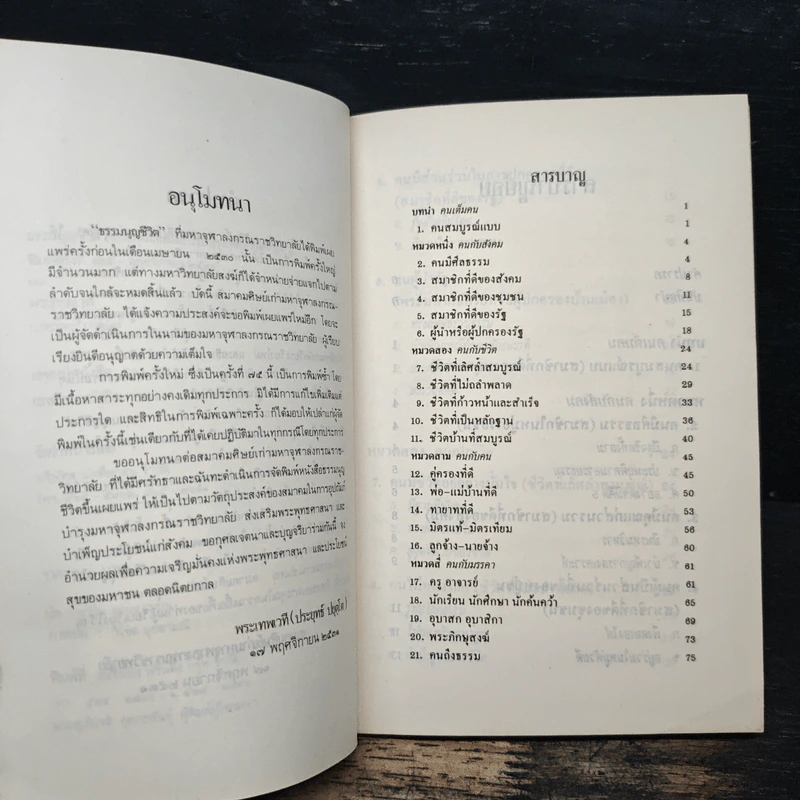 อนุโมทนา
"ธรรมนูญชีวิต" ที่มหาจุฬาลงกรณราชวิทยาลัยได้พิมพ์เผย
แพร่ครั้งก่อนในเดือนเมษายน ๒๕๓๐ นั้น เป็นการพิมพ์ครั้งใหญ่
มีจำนวนมาก แต่ทางมหาวิทยาลัยสงฆ์ก็ได้จำหน่ายจ่ายแจกไปตาม
ลำดับจนใกล้จะหมดสิ้นแล้ว บัดนี้ สมาคมศิษย์เก่ามหาจุฬาลงกรณ-
ราชวิทยาลัย ได้แจ้งความประสงค์จะขอพิมพ์เผยแพร่ใหม่อีก โดยจะ
เป็นผู้จัดดำเนินการในนามของมหาจุฬาลงกรณราชวิทยาลัย ผู้เรียบ
เรียงยินดีอนุญาตด้วยความเต็มใจ
การพิมพ์ครั้งใหม่ ซึ่งเป็นครั้งที่ ๗๕ นี้ เป็นการพิมพ์ซ้ำ โดย
มีเนื้อหาสาระทุกอย่างคงเดิมทุกประการ มิได้มีการแก้ไขเพิ่มเติมแต่
ประการใด และสิทธิในการพิมพ์เฉพาะครั้ง ก็ได้มอบให้เปล่าแก่ผู้จัด
พิมพ์ในครั้งนี้เช่นเดียวกับที่ได้เคยปฏิบัติมาในทุกกรณีโดยทุกประการ
ขออนุโมทนาต่อสมาคมศิษย์เก่ามหาจุฬาลงกรณราช-
วิทยาลัย ที่ได้มีศรัทธาและฉันทะดำเนินการจัดพิมพ์หนังสือธรรมนูญ
ชีวิตขึ้นเผยแพร่ ให้เป็นไปตามวัตถุประสงค์ของสมาคมในการอุปถัมภ์
บำรุงมหาจุฬาลงกรณราชวิทยาลัย ส่งเสริมพระพุทธศาสนา และ
บำเพ็ญประโยชน์แก่สังคม ขอกุศลเจตนาและบุญจริยาร่วมกันนี้ จง
อำนวยผลเพื่อความเจริญมั่นคงแห่งพระพุทธศาสนา และประโยชน์
สุขของมหาชน ตลอดนิตยกาล
พระเทพเวที (ประยุทธ์ ปยุตฺโต)
๑๗ พฤศจิกายน ๒๕๓๑
สารบาญ
บทนำ คนเต็มคน 1
1. คนสมบูรณ์แบบ 1
หมวดหนึ่ง คนกับสังคม 4
2. คนมีศีลธรรม 4
3. สมาชิกที่ดีของสังคม 8
4. สมาชิกที่ดีของชุมชน 11
5. สมาชิกที่ดีของรัฐ 15
6. ผู้นำหรือผู้ปกครองรัฐ 18
หมวดสอง คนกับชีวิต 24
7. ชีวิตที่เลิศล้ำสมบูรณ์ 24
8. ชีวิตที่ไม่ถลำพลาด 29
9. ชีวิตที่ก้าวหน้าและสำเร็จ 33
10. ชีวิตที่เป็นหลักฐาน 36
11. ชีวิตบ้านที่สมบูรณ์ 40
หมวดสาม คนกับคน 45
12. คู่ครองที่ดี 45
13. พ่อ-แม่บ้านที่ดี 50
14. ทายาทที่ดี 53
15. มิตรแท้-มิตรเทียม 56
16. ลูกจ้าง-นายจ้าง 60
หมวดสี่ คนกับมรรคา 61
17. ครู อาจารย์ 61
18. นักเรียน นักศึกษา นักค้นคว้า 65
19. อุบาสก อุบาสิกา 69
20. พระภิกษุสงฆ์ 73
21. คนถึงธรรม 75